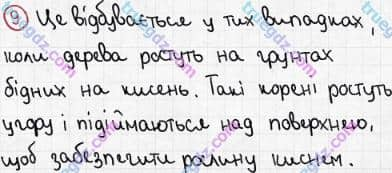 9) Це відбувається у тих випадках,
коли дерева ростуть на грунтах
бідних на кисень. Такі корені ростуть
угору і підіймаються над поверхнею,
щоб забезпечити рослину киснем.